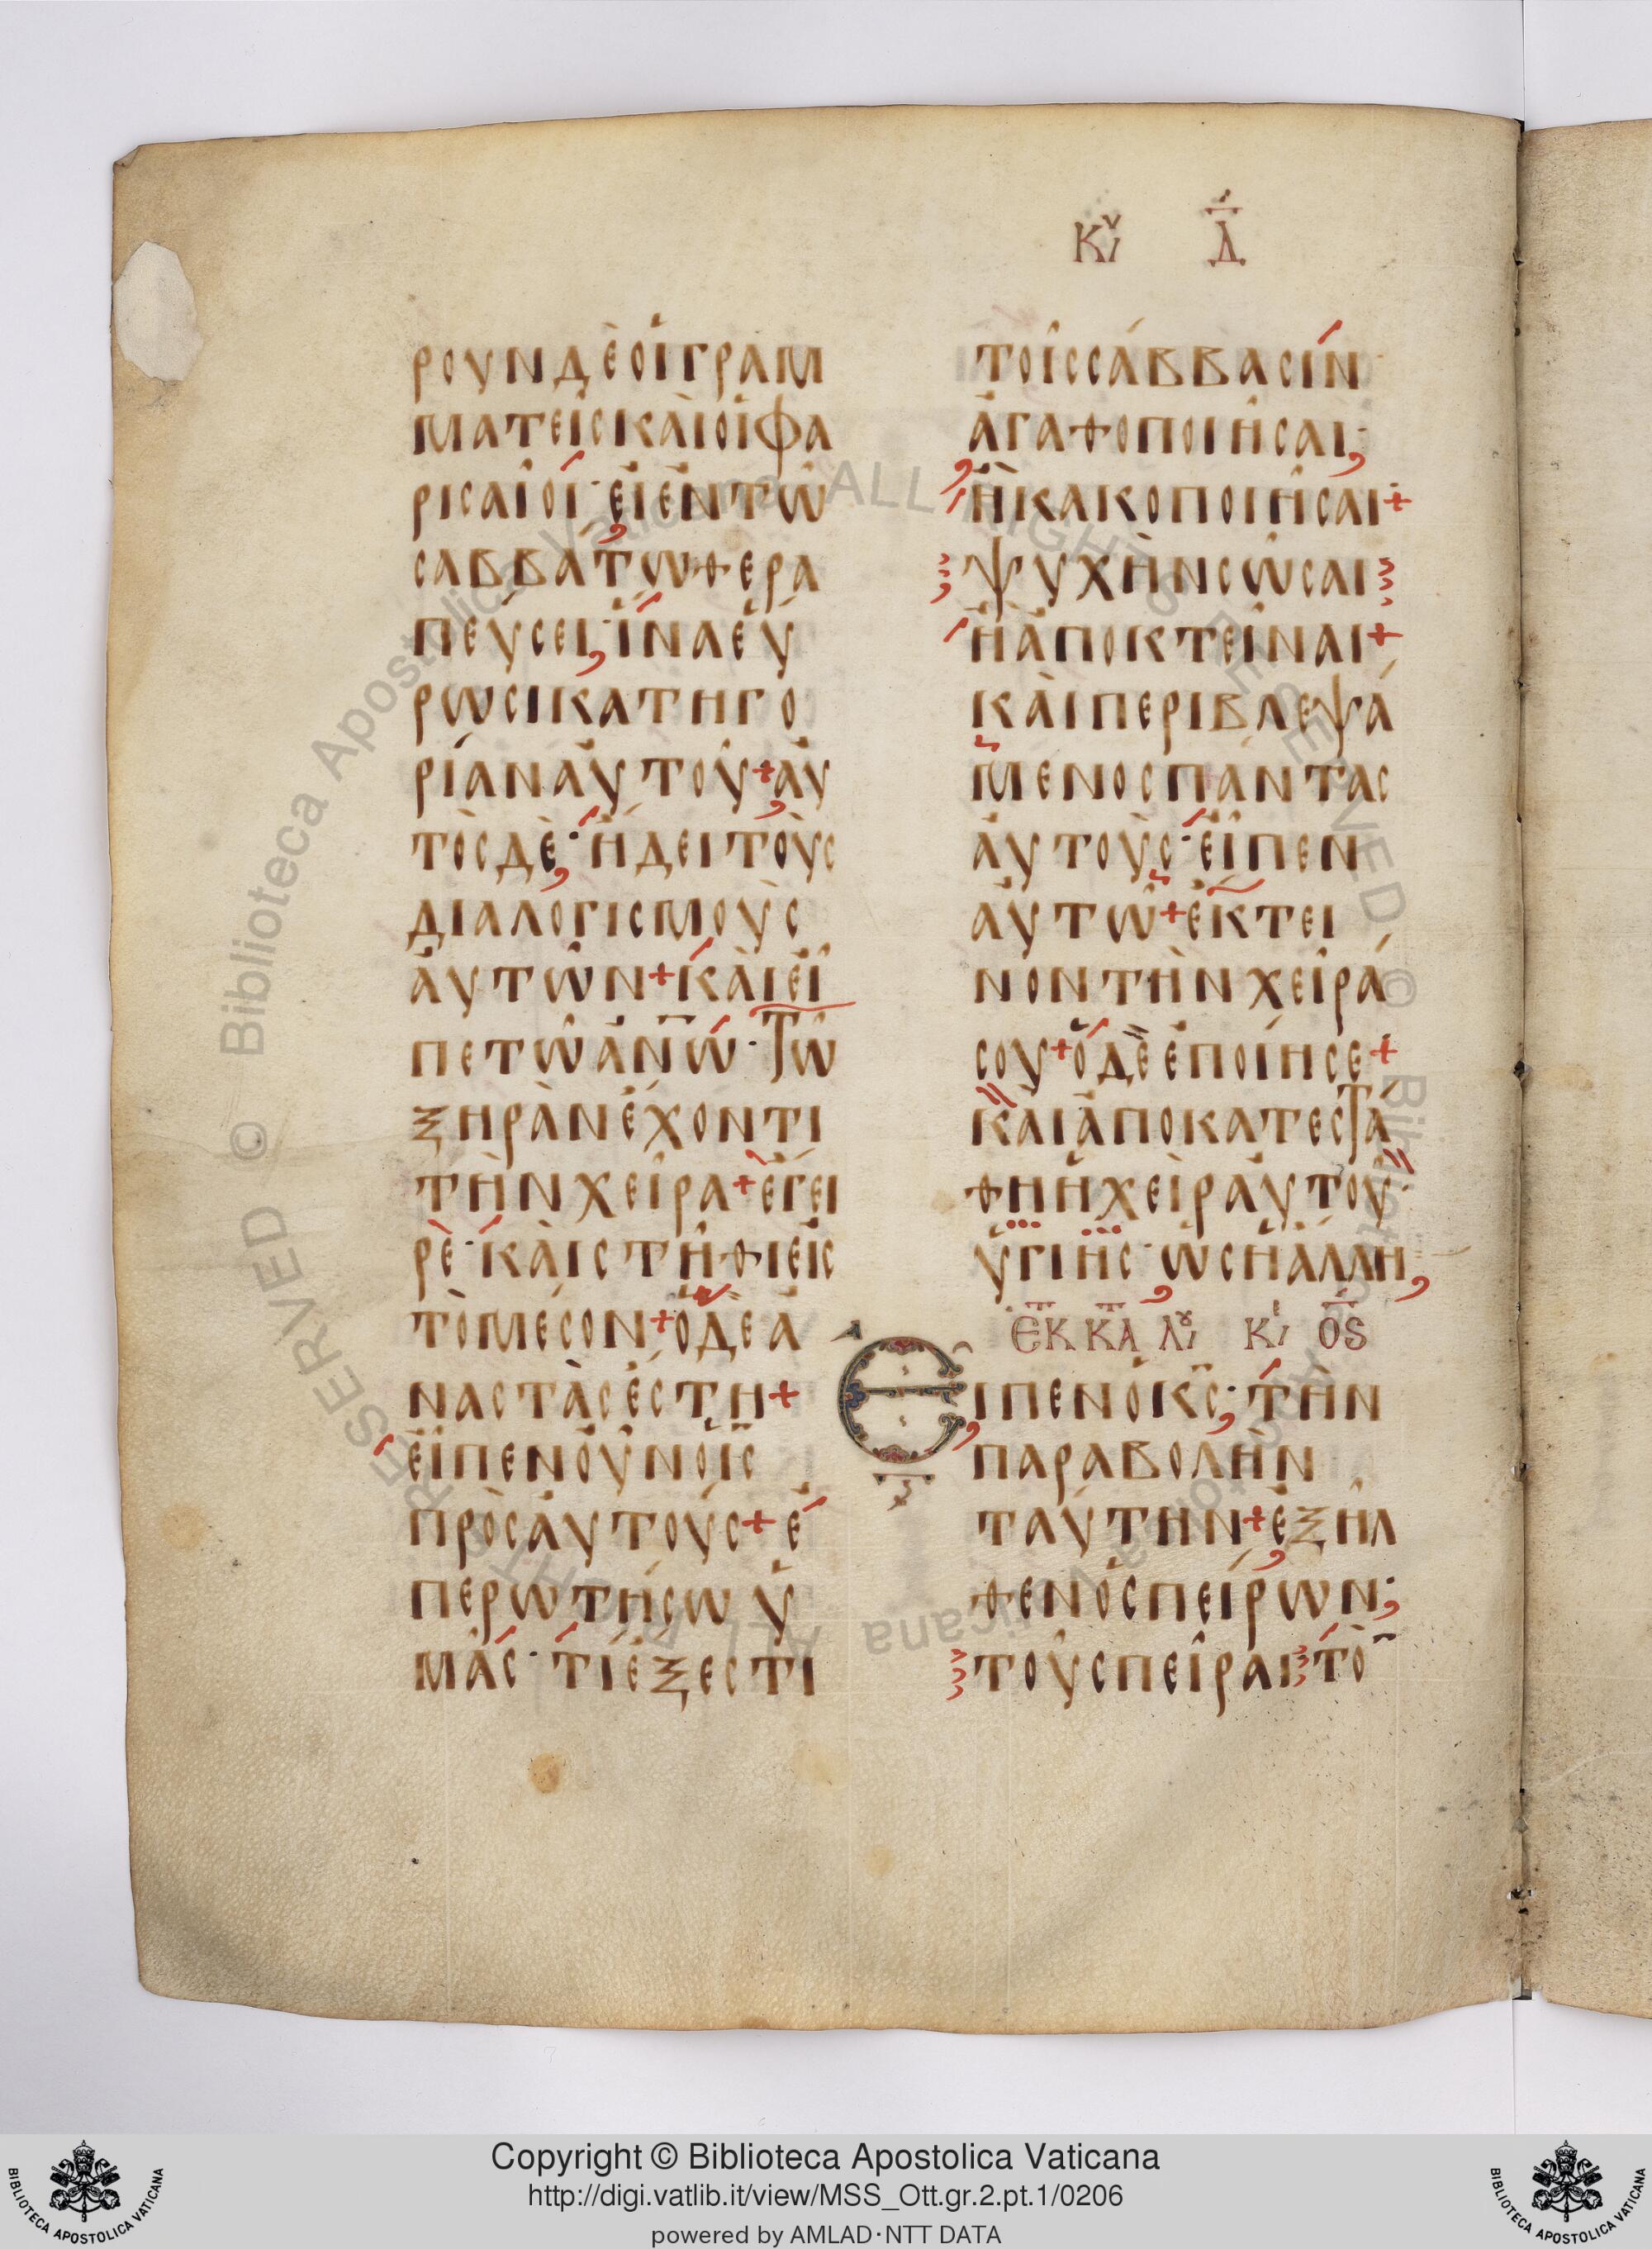 Κυ Δ
ρουν δὲ οἱ γραμ
ματεῖς καὶ οἱ φα
ρισαῖοι· εἰ ἐν τῶ
σαββάτω θερα
πεύσει, ἵνα εὕ
ρωσι κατηγο
ρίαν αὐτοῦ + αὐ
τὸς δὲ, ἤδει τοὺς
διαλογισμοὺς
αὐτῶν + καὶ εἶ
πε τῶ ἀν̅ω· τῶ
ξηρὰν ἔχοντι
τὴν χεῖρα + ἔγει
ρε· καὶ στῆθι εἰς
τὸ μέσον + ὁ δὲ ἀ
ναστὰς ἔστη +
εἶπεν οὖν ὁ ις̅
πρὸς αὐτούς + ἐ
περωτήσω ὑ
μᾶς· τί ἔξεστι
τοῖς σάββασιν
ἀγαθοποιῆσαι,
ἢ κακοποιῆσαι +
ψυχὴν σῶσαι
ἢ ἀποκτεῖναι +
καὶ περιβλεψά
μενος πάντας
αὐτοὺς· εἶπεν
αὐτῶ + ἔκτει
νον τὴν χεῖρά
σου + ὁ δὲ ἐποίησε +
καὶ ἀποκατεστά
θη ἡ χεὶρ αὐτοῦ·
ὑγιὴς· ὡς ἡ ἄλλη,
ΕΚ ΚΑ Λου Κυ ΟϚ
Εἶπεν ὁ κς̅· τὴν
παραβολὴν
ταύτην + ἐξῆλ
θεν ὁ σπείρων,
τοῦ σπεῖραι τὸ̅
Copyright © Biblioteca Apostolica Vaticana
http://digi.vatlib.it/view/MSS_Ott.gr.2.pt.1/0206
powered by AMLAD·NTT DATA
BIBLIOTECA APOSTOLICA VATICANA
BIBLIOTECA APOSTOLICA VATICANA
© Biblioteca Apostolica Vaticana ALL RIGHTS RESERVED © Biblioteca Apostolica Vaticana ALL RIGHTS RESERVED